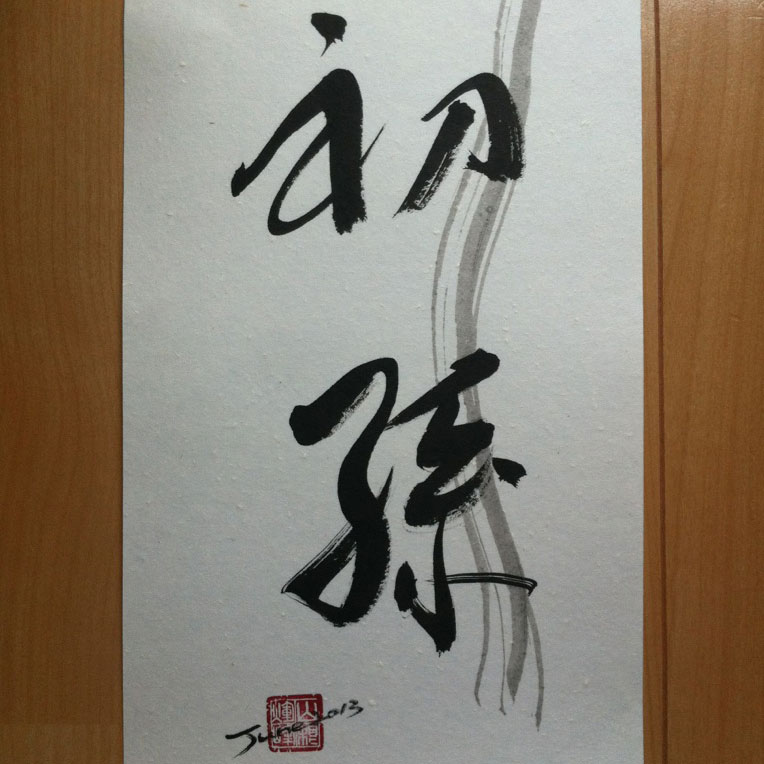 初孫
June 2013